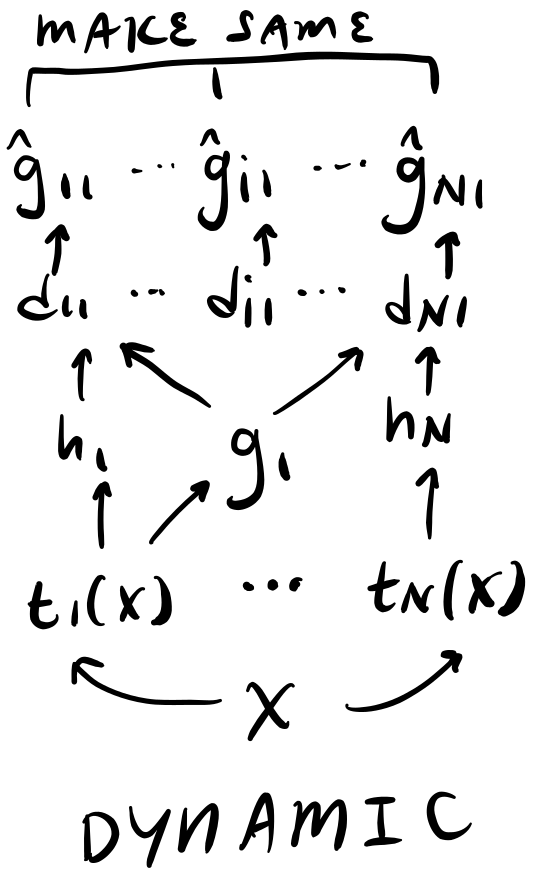 MAKE SAME
ĝ11 ... ĝi1 ... ĝN1
d11 ... di1 ... dN1
h1 g1 hN
t1(x) ... tN(x)
x
DYNAMIC